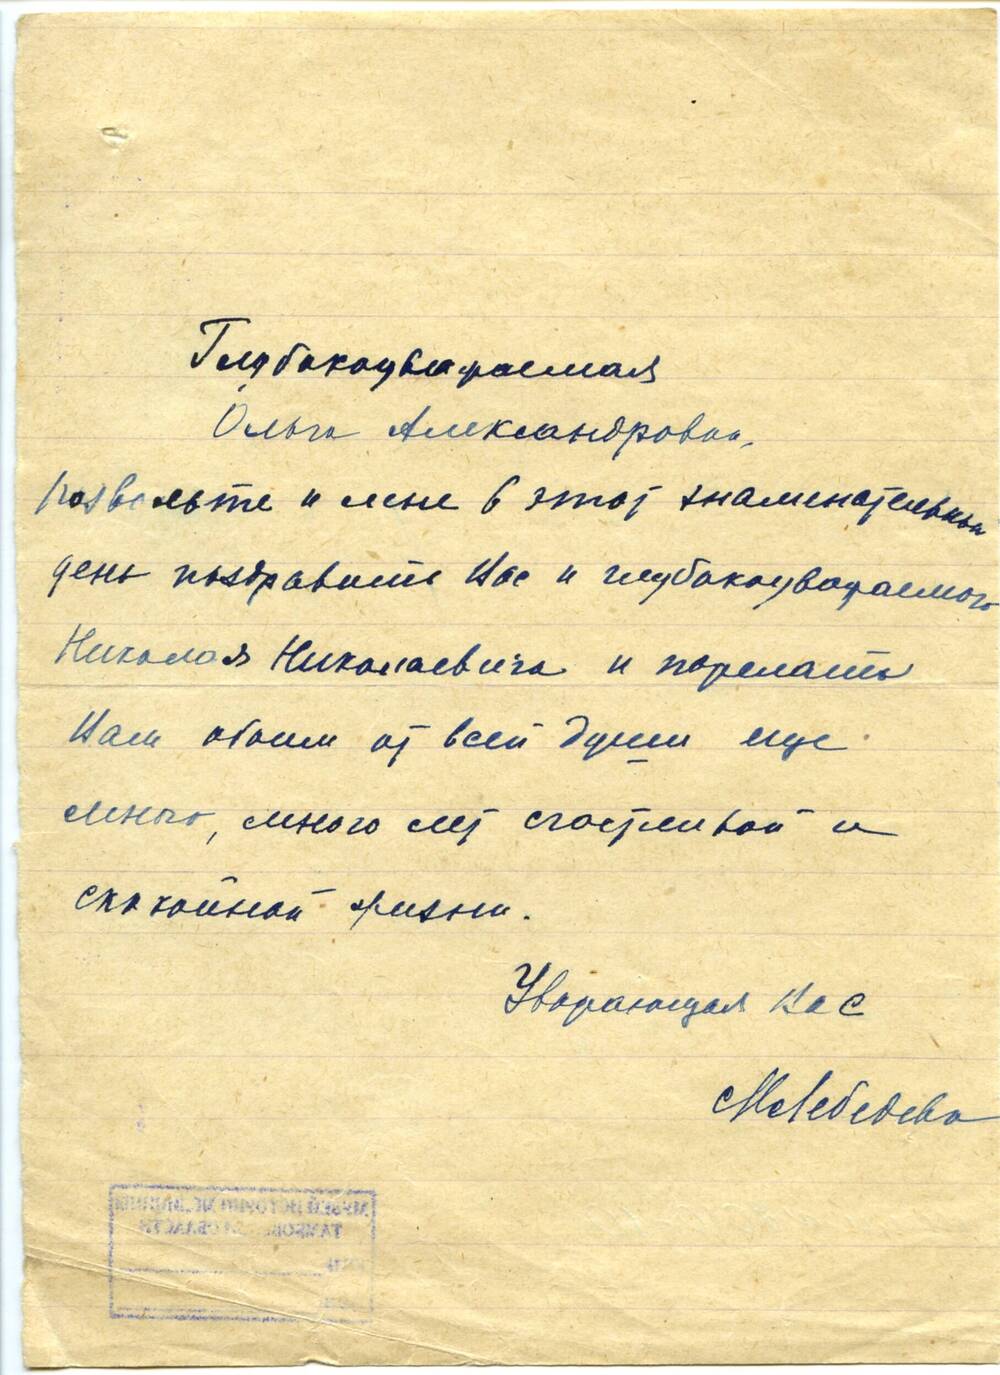 Глубокоуважаемая
Ольга Александровна,
позвольте и мне в этот знаменательный
день поздравить Вас и глубокоуважаемого
Николая Николаевича и пожелать
Вам обоим от всей души еще
много, много лет счастливой и
спокойной жизни.
Уважающая Вас
МЛебедева
МУЗЕЙ ИСТОРИИ МЕДИЦИНЫ
ТАМБОВСКОЙ ОБЛАСТИ